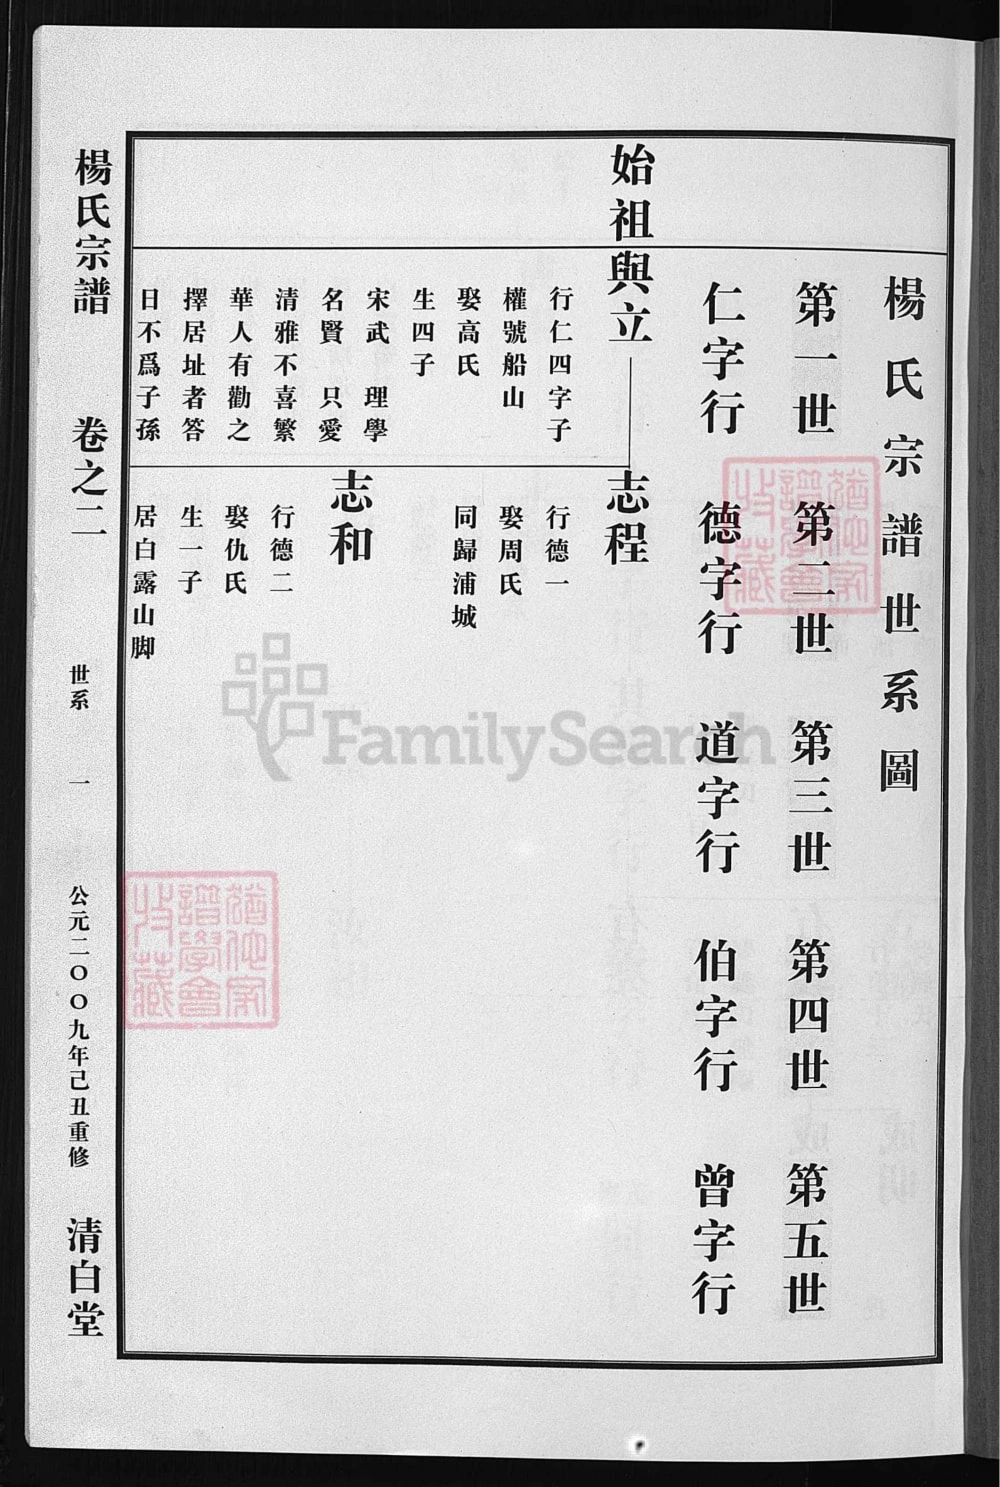 楊氏宗譜世系圖
第一世 第二世 第三世 第四世 第五世
仁字行 德字行 道字行 伯字行 曾字行
始祖與立
行仁四字子
權號船山
娶高氏
生四子
宋武 理學
名賢 只愛
清雅不喜繁
華人有勸之
擇居址者答
日不爲子孫
志程
行德一
娶周氏
同歸浦城
志和
行德二
娶仇氏
生一子
居白露山脚
楊氏宗譜 卷之二 世系 一 公元二〇〇九年己丑重修 清白堂
FamilySearch